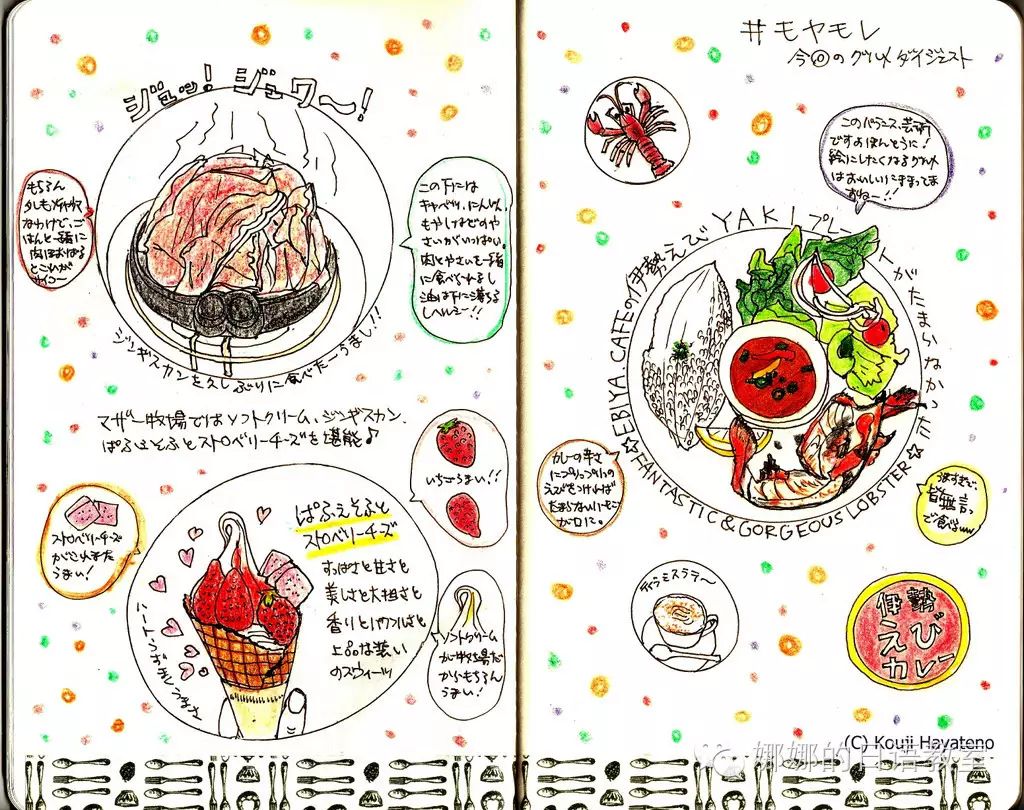 ジュッ!ジュワ〜!
もちろん
なわけで、ご
はんと一緒に
肉ほおばる
この下には
キャベツ、にんじん、
もやしなどのや
さいがいっぱい。
肉とやさいを一緒
に食べられるし
油は下に落ちる
しヘルシー!!
ジンギスカンを久しぶりに食べたーうまし!!
マザー牧場ではソフトクリーム、ジンギスカン、
ぱふぇそふとストロベリーチーズを堪能♪
いちごうまい!!
ストロベリーチーズ
がこれまた
うまい!
ぱふぇそふと
ストロベリーチーズ
すっぱさと甘さと
美しさと大胆さと
香りと
上品な装い
のスウィーツ
ソフトクリーム
が牧場だ
からもちろん
うまい!
#モヤモレ
今日のグルメダイジェスト
このバランス、芸術
ですよほんとうに!
絵にしたくなるグルメ
はおいしいにきまってま
すねー!!
EBIYA.CAFEの伊勢えびYAKIプレートがたまらなかった!!
☆FANTASTIC&GORGEOUS LOBSTER☆
カレーの辛さ
にプリップリの
えびをつければ
たまらないうまこ
が口に。
うますぎて、
皆無言っ
ご食べw
ティラミスラテ〜
伊勢
えび
カレー
(C) Kouji Hayateno
娜娜的日语教室